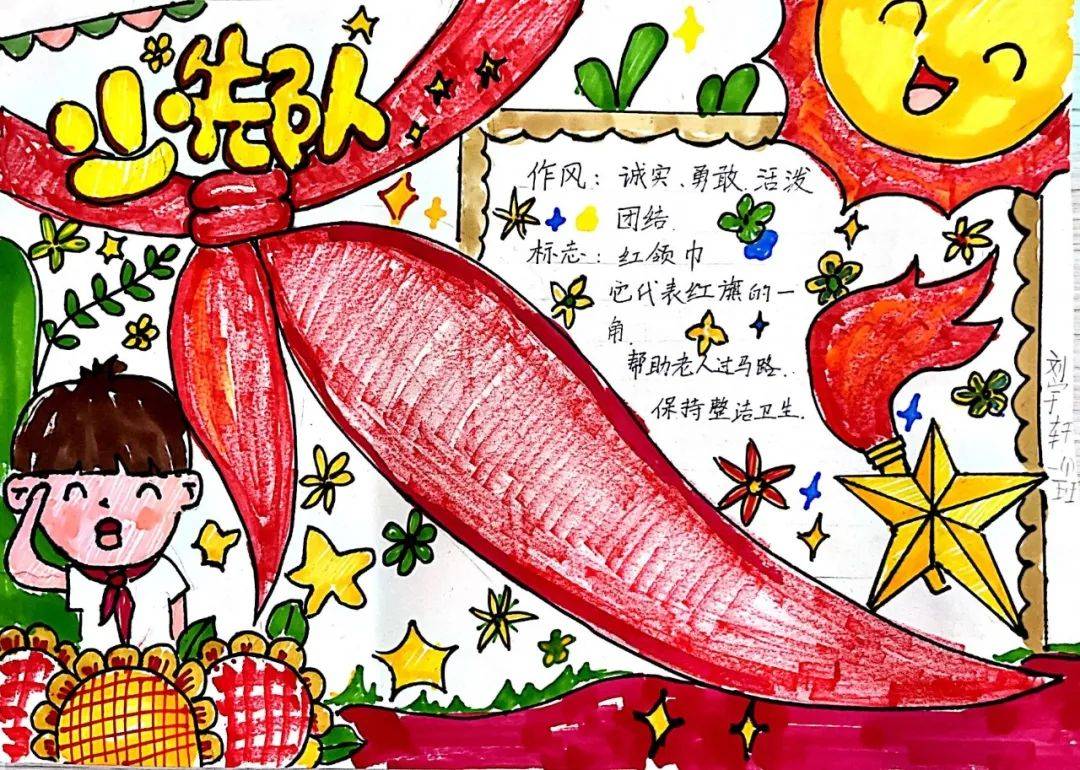 少先队
作风：诚实、勇敢、活泼
团结.
标志：红领巾
它代表红旗的一
角.
帮助老人过马路.
保持整洁卫生.
刘宇轩 11班